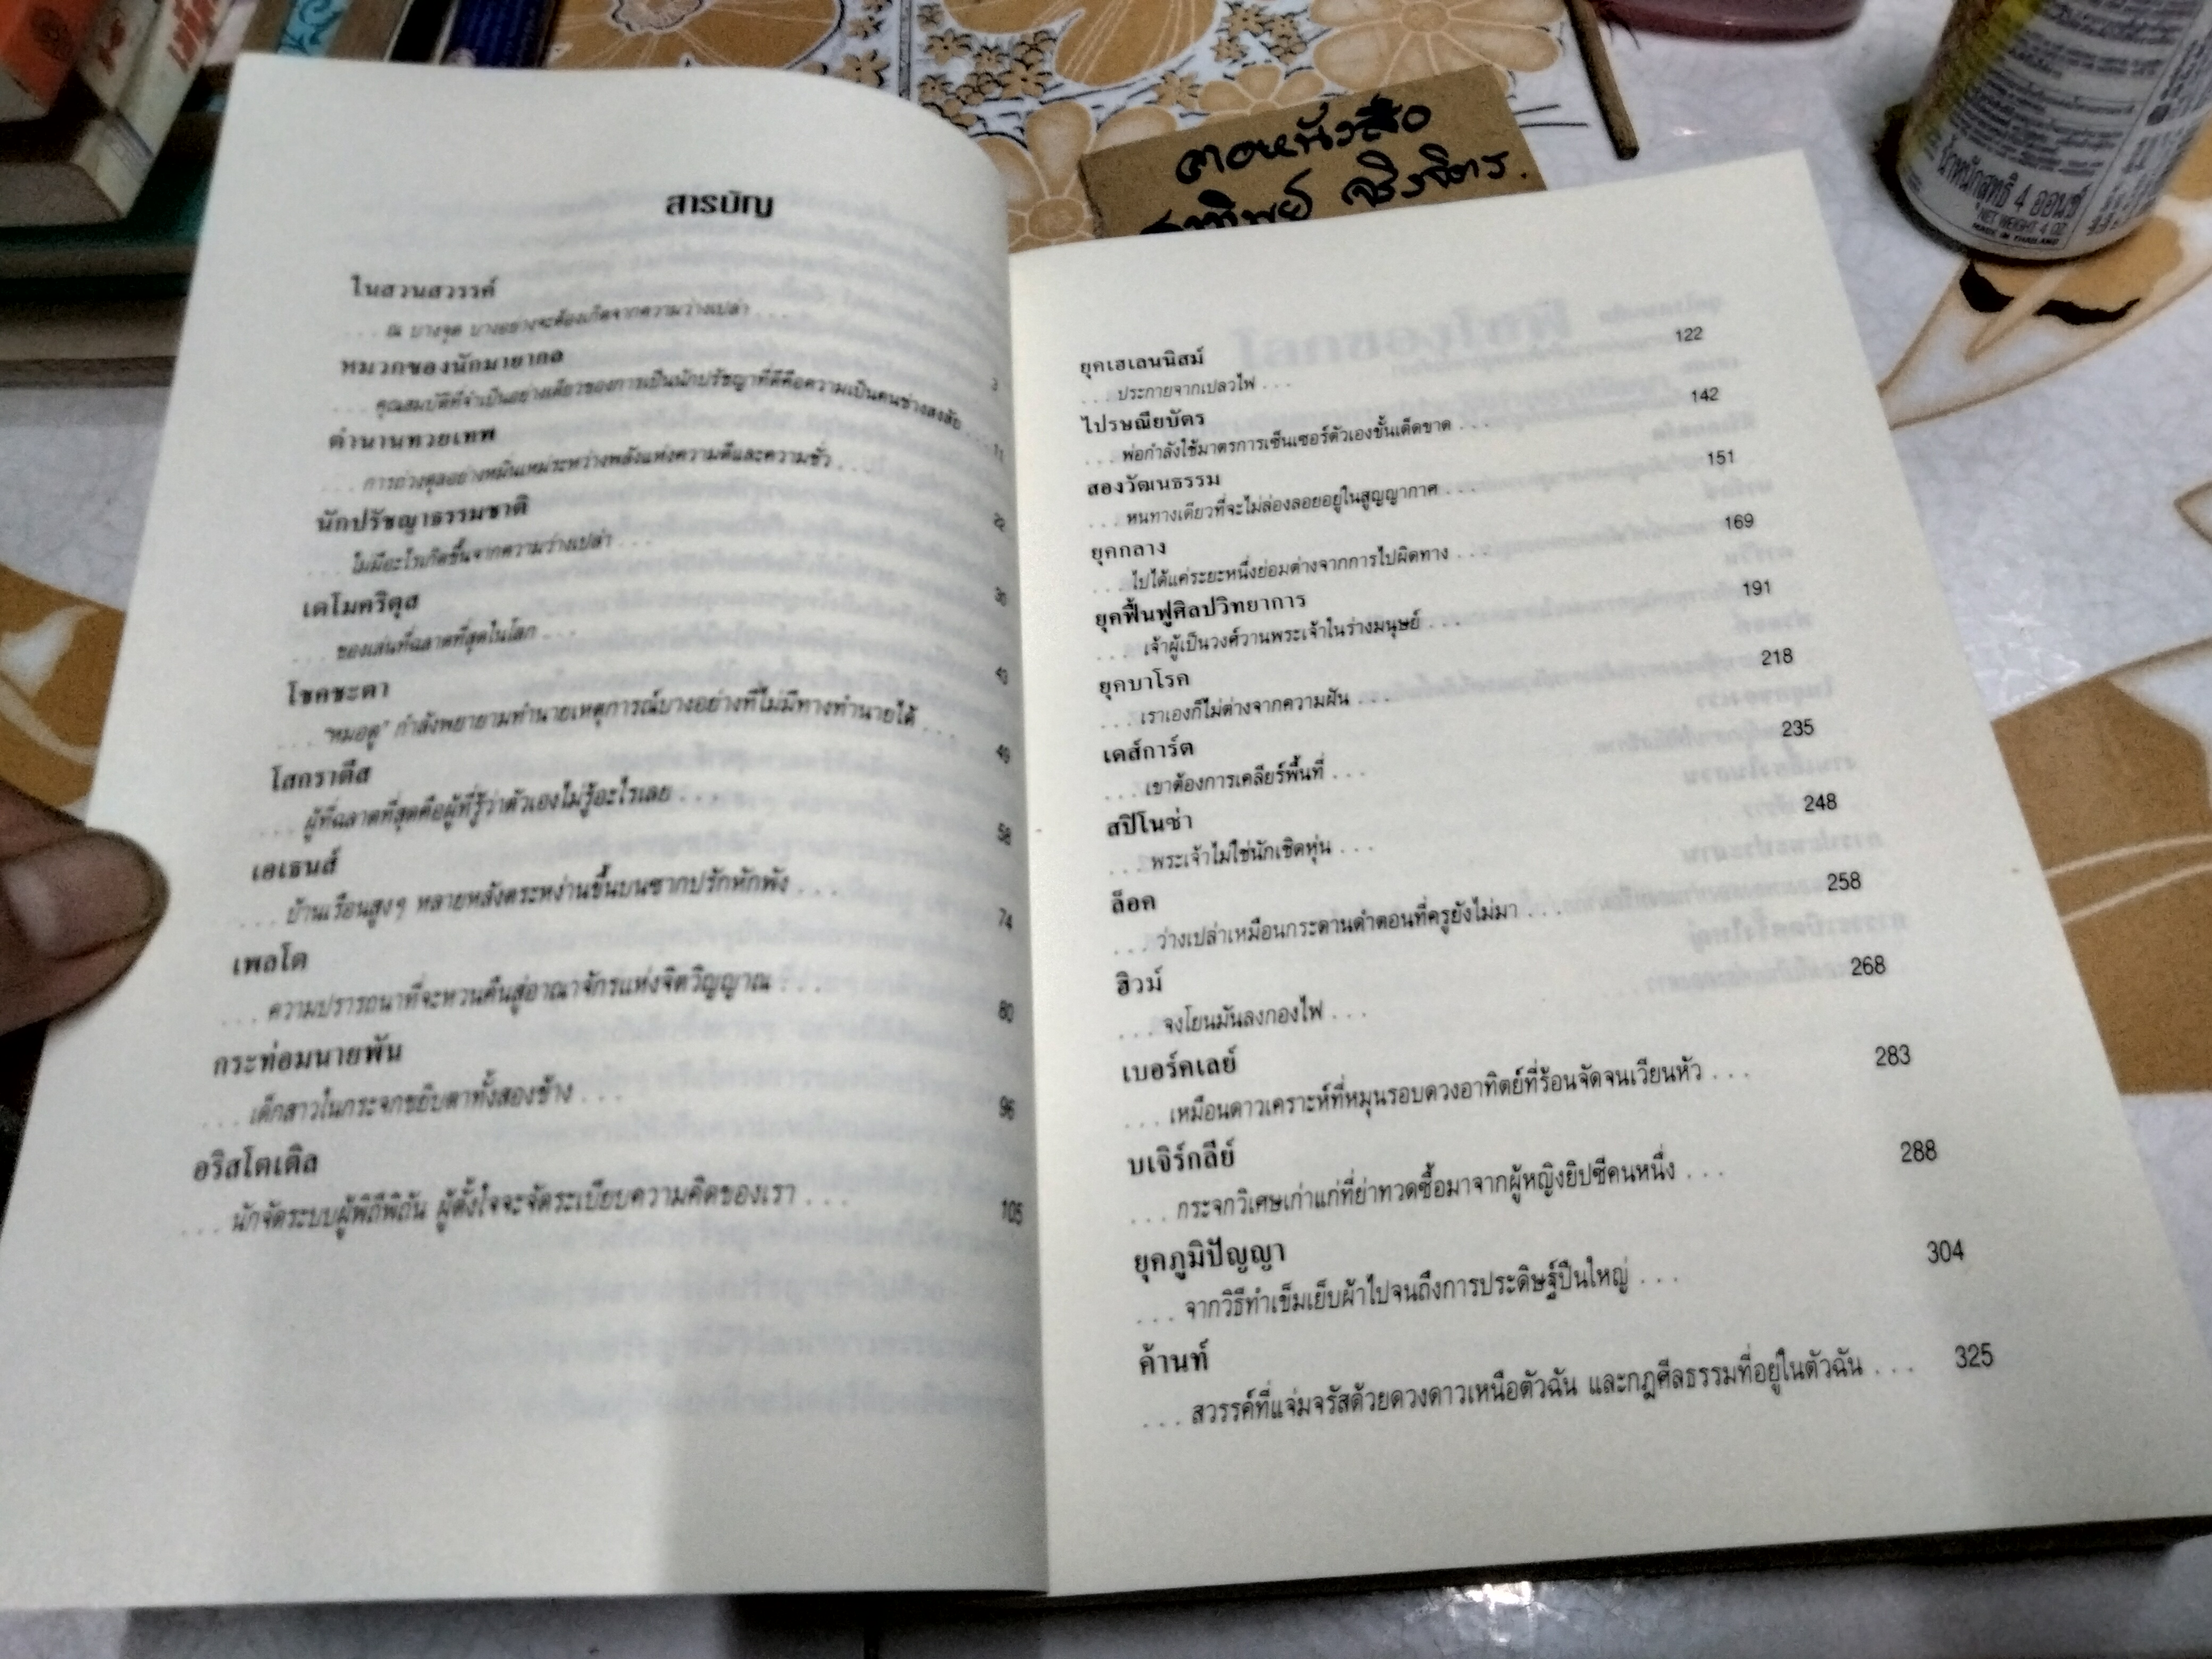 สารบัญ
ในสวนสวรรค์
. . . ณ บางจุด บางอย่างจะต้องเกิดจากความว่างเปล่า . . . 3
หมวกของนักมายากล
. . . คุณสมบัติที่จำเป็นอย่างเดียวของการเป็นนักปรัชญาที่ดีคือความเป็นคนช่างสงสัย . . . 11
ตำนานทวยเทพ
. . . การถ่วงดุลอย่างหมิ่นเหม่ระหว่างพลังแห่งความดีและความชั่ว . . .
นักปรัชญาธรรมชาติ
. . . ไม่มีอะไรเกิดขึ้นจากความว่างเปล่า . . .
เดโมคริตุส
. . . ของเล่นที่ฉลาดที่สุดในโลก . . . 43
โชคชะตา
. . . "หมอดู" กำลังพยายามทำนายเหตุการณ์บางอย่างที่ไม่มีทางทำนายได้ . . . 49
โสกราตีส
. . . ผู้ที่ฉลาดที่สุดคือผู้ที่รู้ว่าตัวเองไม่รู้อะไรเลย . . . 58
เอเธนส์
. . . บ้านเรือนสูงๆ หลายหลังตระหง่านขึ้นบนซากปรักหักพัง . . . 74
เพลโต
. . . ความปรารถนาที่จะหวนคืนสู่อาณาจักรแห่งจิตวิญญาณ . . . 80
กระท่อมนายพัน
. . . เด็กสาวในกระจกขยิบตาทั้งสองข้าง . . . 96
อริสโตเติล
. . . นักจัดระบบผู้พิถีพิถัน ผู้ตั้งใจจะจัดระเบียบความคิดของเรา . . . 105
ยุคเฮเลนนิสม์ 122
. . . ประกายจากเปลวไฟ . . .
ไปรษณียบัตร 142
. . . พ่อกำลังใช้มาตรการเซ็นเซอร์ตัวเองขั้นเด็ดขาด . . .
สองวัฒนธรรม 151
. . . หนทางเดียวที่จะไม่ล่องลอยอยู่ในสูญญากาศ . . .
ยุคกลาง 169
. . . ไปได้แค่ระยะหนึ่งย่อมต่างจากการไปผิดทาง . . .
ยุคฟื้นฟูศิลปวิทยาการ 191
. . . เจ้าผู้เป็นวงศ์วานพระเจ้าในร่างมนุษย์ . . .
ยุคบาโรค 218
. . . เราเองก็ไม่ต่างจากความฝัน . . .
เดส์การ์ต 235
. . . เขาต้องการเคลียร์พื้นที่ . . .
สปิโนซ่า 248
. . . พระเจ้าไม่ใช่นักเชิดหุ่น . . .
ล็อค 258
. . . ว่างเปล่าเหมือนกระดานดำตอนที่ครูยังไม่มา . . .
ฮิวม์ 268
. . . จงโยนมันลงกองไฟ . . .
เบอร์คเลย์ 283
. . . เหมือนดาวเคราะห์ที่หมุนรอบดวงอาทิตย์ที่ร้อนจัดจนเวียนหัว . . .
บเจิร์กลีย์ 288
. . . กระจกวิเศษเก่าแก่ที่ย่าทวดซื้อมาจากผู้หญิงยิปซีคนหนึ่ง . . .
ยุคภูมิปัญญา 304
. . . จากวิธีทำเข็มเย็บผ้าไปจนถึงการประดิษฐ์ปืนใหญ่ . . .
ค้านท์
. . . สวรรค์ที่แจ่มจรัสด้วยดวงดาวเหนือตัวฉัน และกฎศีลธรรมที่อยู่ในตัวฉัน . . . 325
น้ำหนักสุทธิ 4 ออนซ์
NET WEIGHT 4 OZ
MADE IN THAILAND